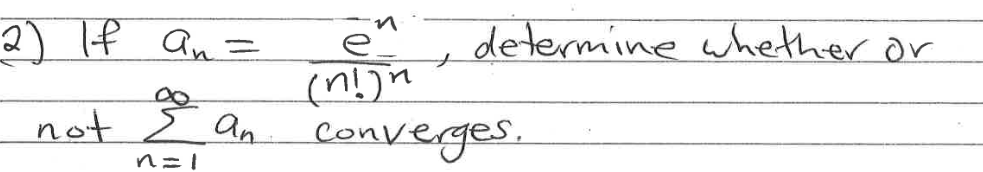 2) If aₙ = eⁿ/(n!)ⁿ, determine whether or
not ∞∑n=1 aₙ converges.